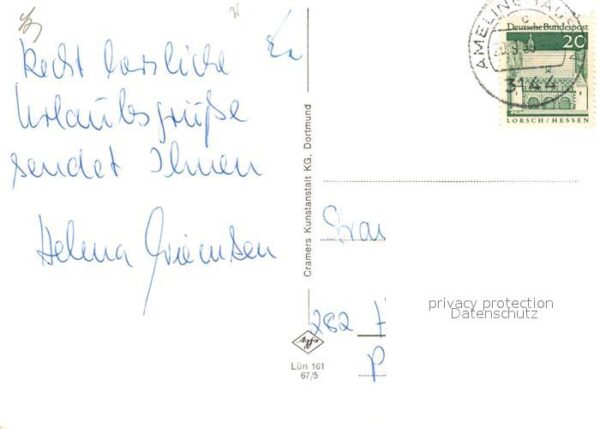 Recht herzliche
Urlaubsgrüße
sendet Ihnen
Helma
Cramers Kunstanstalt KG, Dortmund
Lün 161
67/5
AMELINGHAUS
3144
Deutsche Bundespost
20
LORSCH/HESSEN
Frau
282
P
privacy protection
Datenschutz